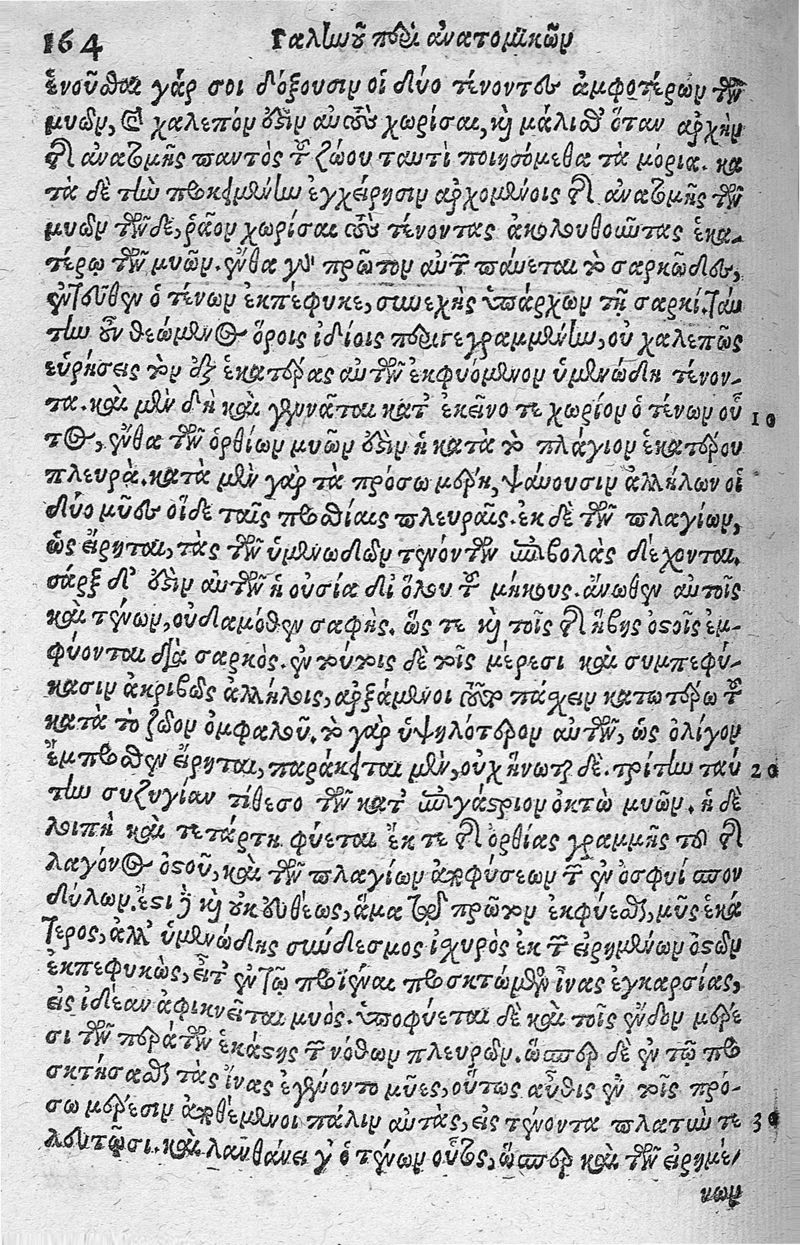 164 Γαλίωοῦ περὶ ἀνατομικῶν
ἑνοῦσθαι γάρ σοι δόξουσιν οἱ δύο τένοντες ἀμφοτέρων τῶν
μυῶν, καὶ χαλεπὸν οὐδὲν αὐτοὺς χωρίσαι, καὶ μάλισθ' ὅταν ἀρχὴν
τῆς ἀνατομῆς παντὸς τοῦ ζώου ταυτὶ ποιησόμεθα τὰ μόρια. κα
τὰ δὲ τὴν προκειμένην ἐγχείρησιν ἀρχομένοις τῆς ἀνατομῆς τῶν
μυῶν τῶνδε, ῥᾷον χωρίσαι τοὺς τένοντας ἀκολουθοῦντας ἑκα-
τέρῳ τῶν μυῶν. ἔνθα γὰρ πρῶτον αὐτοῦ παύεται τὸ σαρκῶδες,
ἐντεῦθεν ὁ τένων ἐκπέφυκε, συνεχὴς ὑπάρχων τῇ σαρκί. ταύ
την οὖν θεώμενος ὅροις ἰδίοις περιγεγραμμένην, οὐ χαλεπῶς
εὑρήσεις τὸν ἐξ ἑκατέρας αὐτῶν ἐκφυόμενον ὑμενώδη τένον-
τα. καὶ μὲν δὴ καὶ γεννᾶται κατ' ἐκεῖνό τε χωρίον ὁ τένων οὗ 10
τος, ἔνθα τῶν ὀρθίων μυῶν οὐδὲν ἢ κατὰ τὸ πλάγιον ἑκατέρου
πλευρά. κατὰ μὲν γὰρ τὰ πρόσω μέρη, ψαύουσιν ἀλλήλων οἱ
δύο μῦες οἵδε ταῖς προσθίαις πλευραῖς. ἐκ δὲ τῶν πλαγίων,
ὡς εἴρηται, τὰς τῶν ὑμενωδῶν τενόντων ἐπιβολὰς δέχονται.
σὰρξ δ' οὐδὲν αὐτῶν ἡ οὐσία δι' ὅλου τοῦ μήκους. ἄνωθεν αὐτοῖς
καὶ τένων, οὐδαμόθεν σαφής. ὥς τε καὶ τοῖς τῆς ἥβης ὀστοῖς ἐμ-
φύονται διὰ σαρκός. ἐν τούτοις δὲ τοῖς μέρεσι καὶ συμπεφύ-
κασιν ἀκριβῶς ἀλλήλοις, ἀρξάμενοι τοῦτο πάσχειν κατωτέρω τοῦ
κατὰ τὸ ζῶον ὀμφαλοῦ. τὸ γὰρ ὑψηλότερον αὐτῶν, ὡς ὀλίγον
ἔμπροσθεν εἴρηται, παράκειται μὲν, οὐχ ἥνωται δέ. τρίτην ταύ 20
την συζυγίαν τίθεσο τῶν κατ' ἐπιγάστριον ὀκτὼ μυῶν. ἡ δὲ
λοιπὴ καὶ τετάρτη φύεται ἔκ τε τῆς ὀρθίας γραμμῆς τοῦ τῆς
λαγόνος ὀστοῦ, καὶ τῶν πλαγίων ἀποφύσεων τῶν ἐν ὀσφυί σπον
δύλων. ἔστι δὲ καὶ οὐκ εὐθέως, ἅμα τῷ πρῶτον ἐκφύεσθαι, μῦς ἑκά
τερος, ἀλλ' ὑμενώδης σύνδεσμος ἰσχυρὸς ἐκ τῶν εἰρημένων ὀστῶν
ἐκπεφυκὼς, εἶτ' ἐν τῷ προϊέναι προσκτώμενος ἶνας ἐγκαρσίας,
εἰς ἰδέαν ἀφικνεῖται μυός. ὑποφύεται δὲ καὶ τοῖς ἔνδον μέρε
σι τῶν περάτων ἑκάστης τῶν νόθων πλευρῶν. ὥσπερ δὲ ἐν τῷ προ
σκτήσασθαι τὰς ἶνας ἐγένοντο μῦες, οὕτως αὖθις ἐν τοῖς πρό-
σω μέρεσιν ἀποθέμενοι πάλιν αὐτὰς, εἰς τένοντα πλατὺν τε 30
λευτῶσι. καὶ λανθάνει γ' ὁ τένων οὗτος, ὥσπερ καὶ τῶν εἰρημέ-
νων